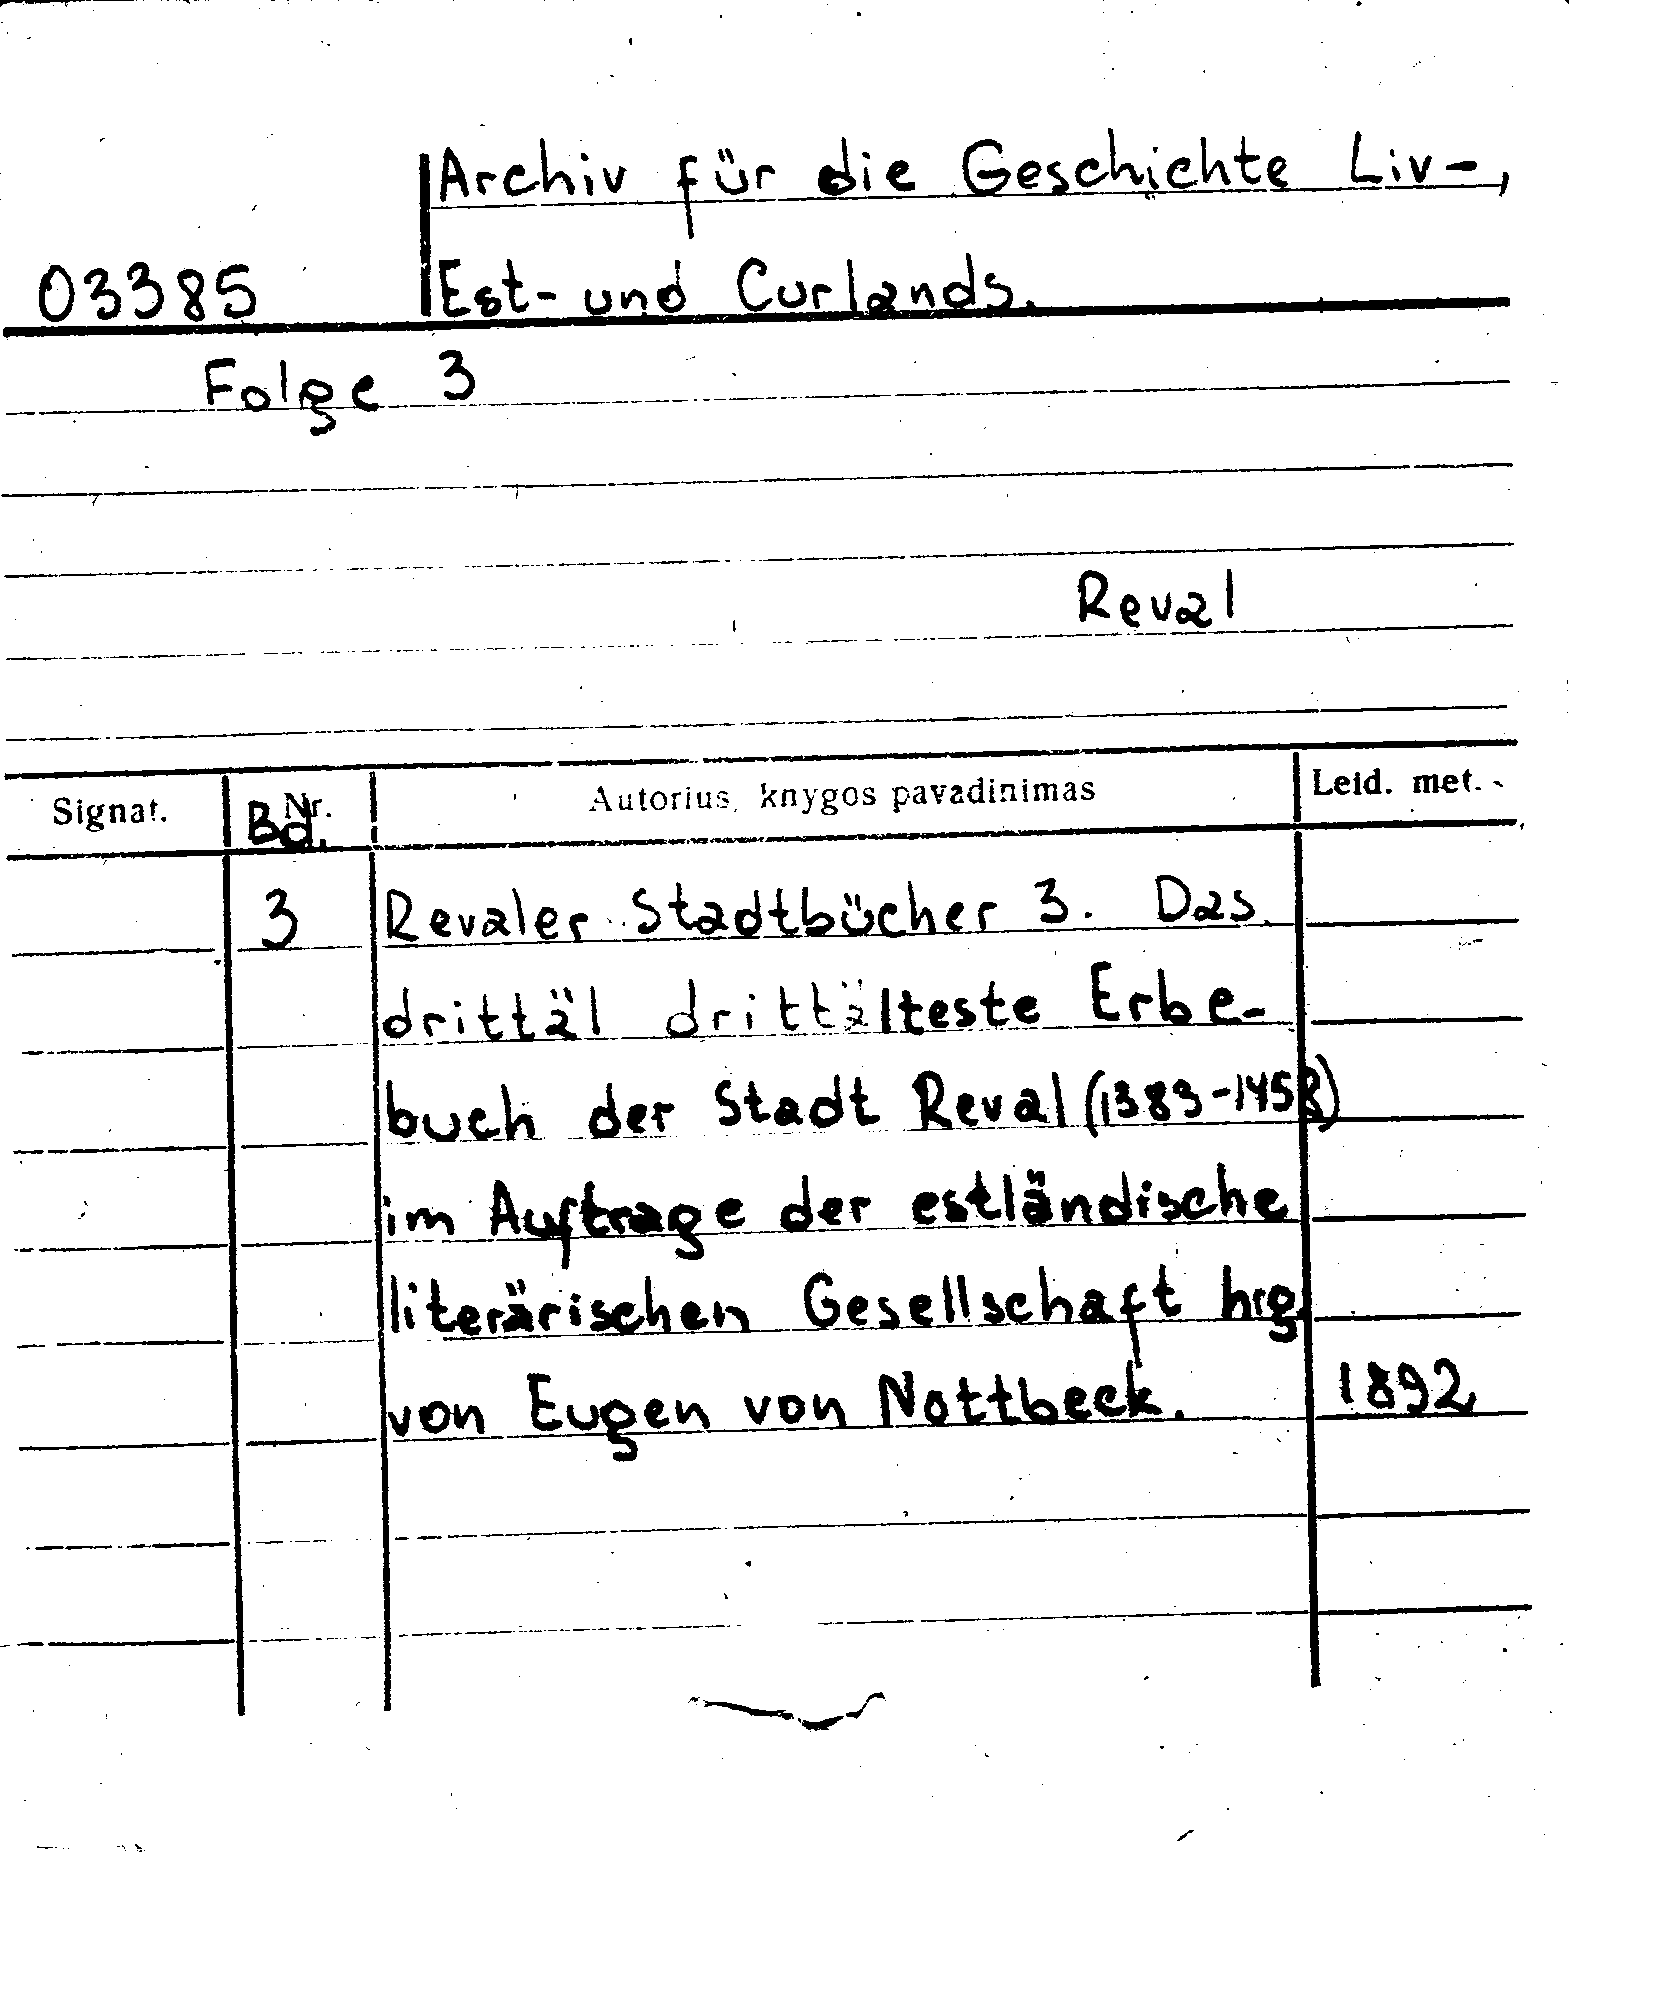 Archiv für die Geschichte Liv-,
03385 Est- und Curlands.
Folge 3
Reval
Signat. Nr. Bd. Autorius, knygos pavadinimas Leid. met.
3 Revaler Stadtbücher 3. Das
drittäl drittälteste Erbe-
buch der Stadt Reval (1383-1458)
im Auftrage der estländische
literärischen Gesellschaft hrg.
von Eugen von Nottbeck. 1892